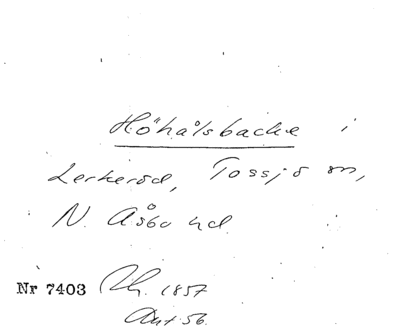 Höhålsbacke i
Lerkeröd, Tossjö sn,
N. Åsbo hd
Nr 7403 Rh. 1857
Ant. 56.